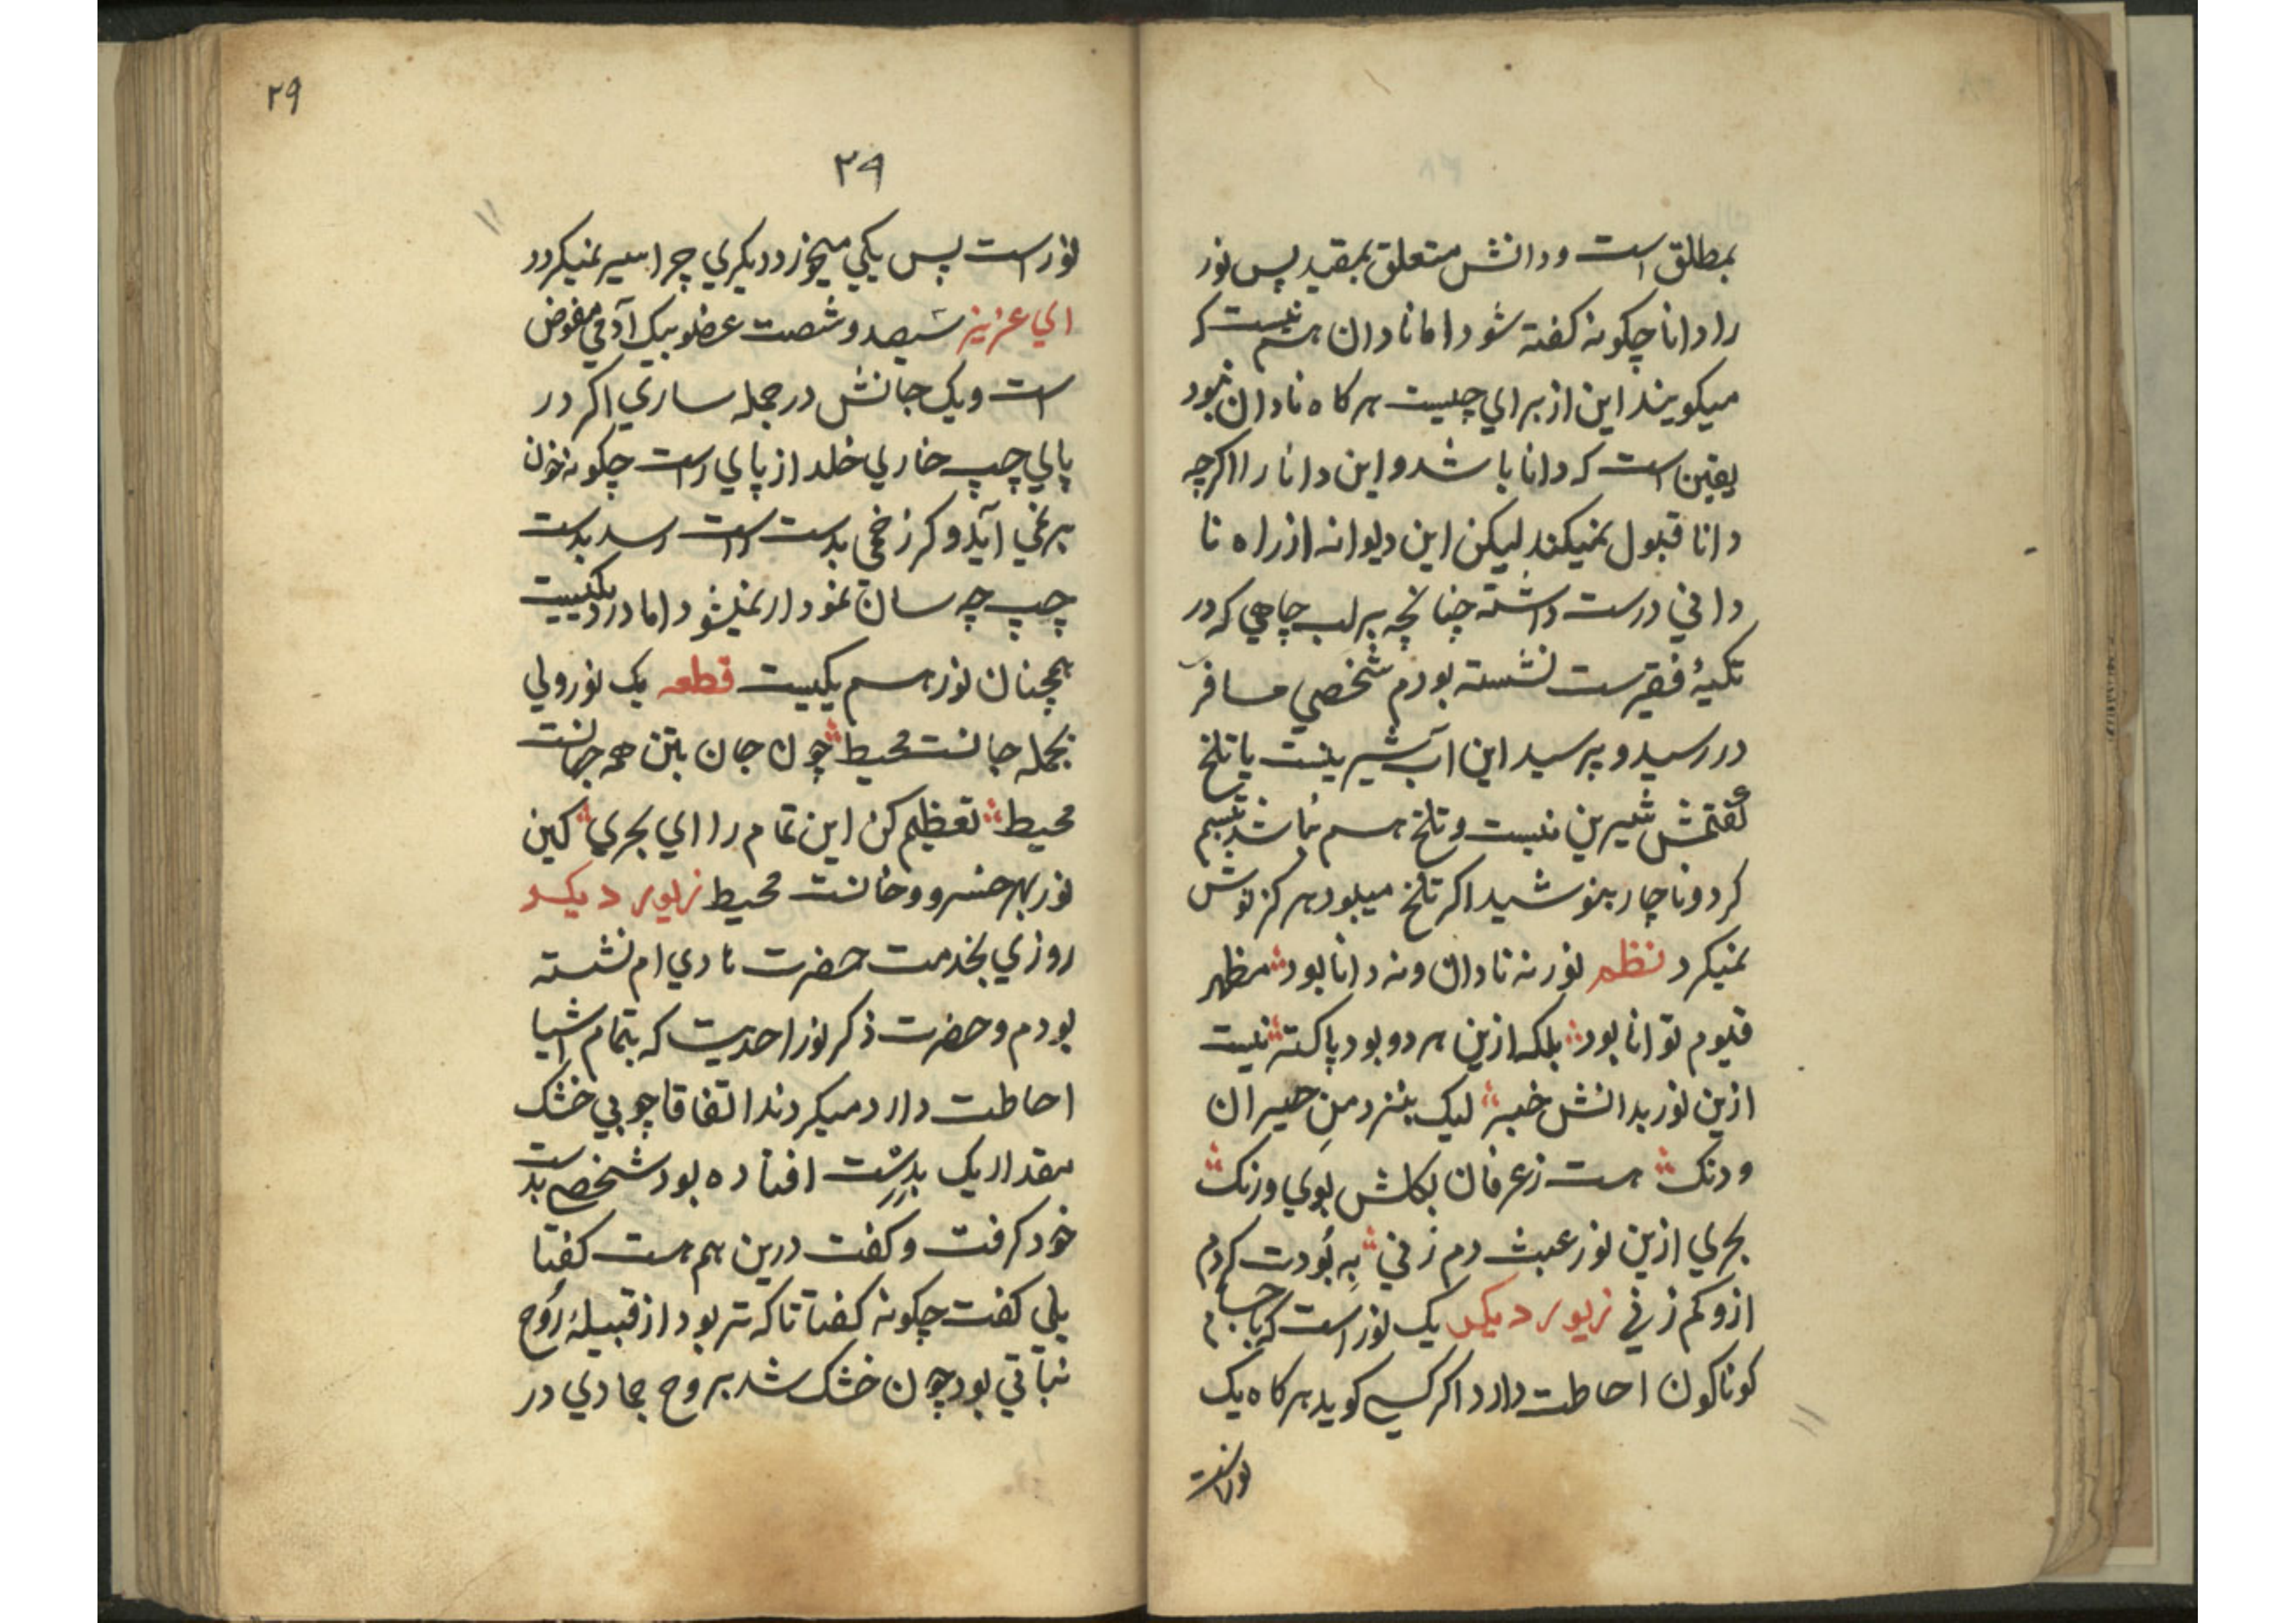 بمطلق است و دانش متعلق بمقید پس نور
را دانا چکونه کفته شود اما نادان هم نیست که
میکویند این از برای چیست هرکاه نادان نبود
یقین است که دانا باشد و این دانا را اکرچه
دانا قبول نمیکند لیکن این دیوانه از راه نا
دانی درست داشته چنانچه بر لب چاهی که در
تکیهٔ فقیرست نشسته بودم شخصی مسافر
در رسید و پرسید این آب شیرینست یا تلخ
کفتمش شیرین نیست و تلخ هم نباشد تبسم
کرد و ناچار بنوشید اکر تلخ میبود هرکز نوش
نمیکرد نظم نور نه نادان و نه دانا بود مظهر
قیوم توانا بود بلکه ازین هر دو بود پاکتر نیست
ازین نور بدانش خبر لیک بنزد من حیران
و دنک هست زعرفان بکلش بوی و رنک
بحری ازین نور عبث دم زنی به بودت کردم
ازو کم زنی زیور دیکر یک نور است که باجسام
کوناکون احاطت دارد اکر کسی کوید هرکاه یک
نور است
۲۹
۲۹
نور است پس یکی میخورد دیکری چرا سیر نمیکردد
ای عزیز سیصد و شصت عضو بیک آدمی مفوض
است و یک جانش در جمله ساری اکر در
پای چپ خاری خلد از پای راست چکونه خون
بر نمی آید و کر زخمی بدست راست رسد بدست
چپ چه سان نمودار نمیشود اما درد یکیست
همچنان نور هم یکیست قطعه یک نور ولی
بجمله جانست محیط چون جان بتن همه جهانست
محیط تعظیم کن این تمام را ای بحری کین
نور بهر خس و خانست محیط زیور دیکر
روزی بخدمت حضرت هادی ام نشسته
بودم و حضرت ذکر نور احدیت که بتمام اشیا
احاطت دارد میکردند اتفاقا چوبی خشک
مقدار یک بدست افتاده بود شخصی بدست
خود کرفت و کفت درین هم هست کفتا
بلی کفت چکونه کفتا تا که تر بود از قبیلهٔ روح
نباتی بود چون خشک شد بروح جمادی در